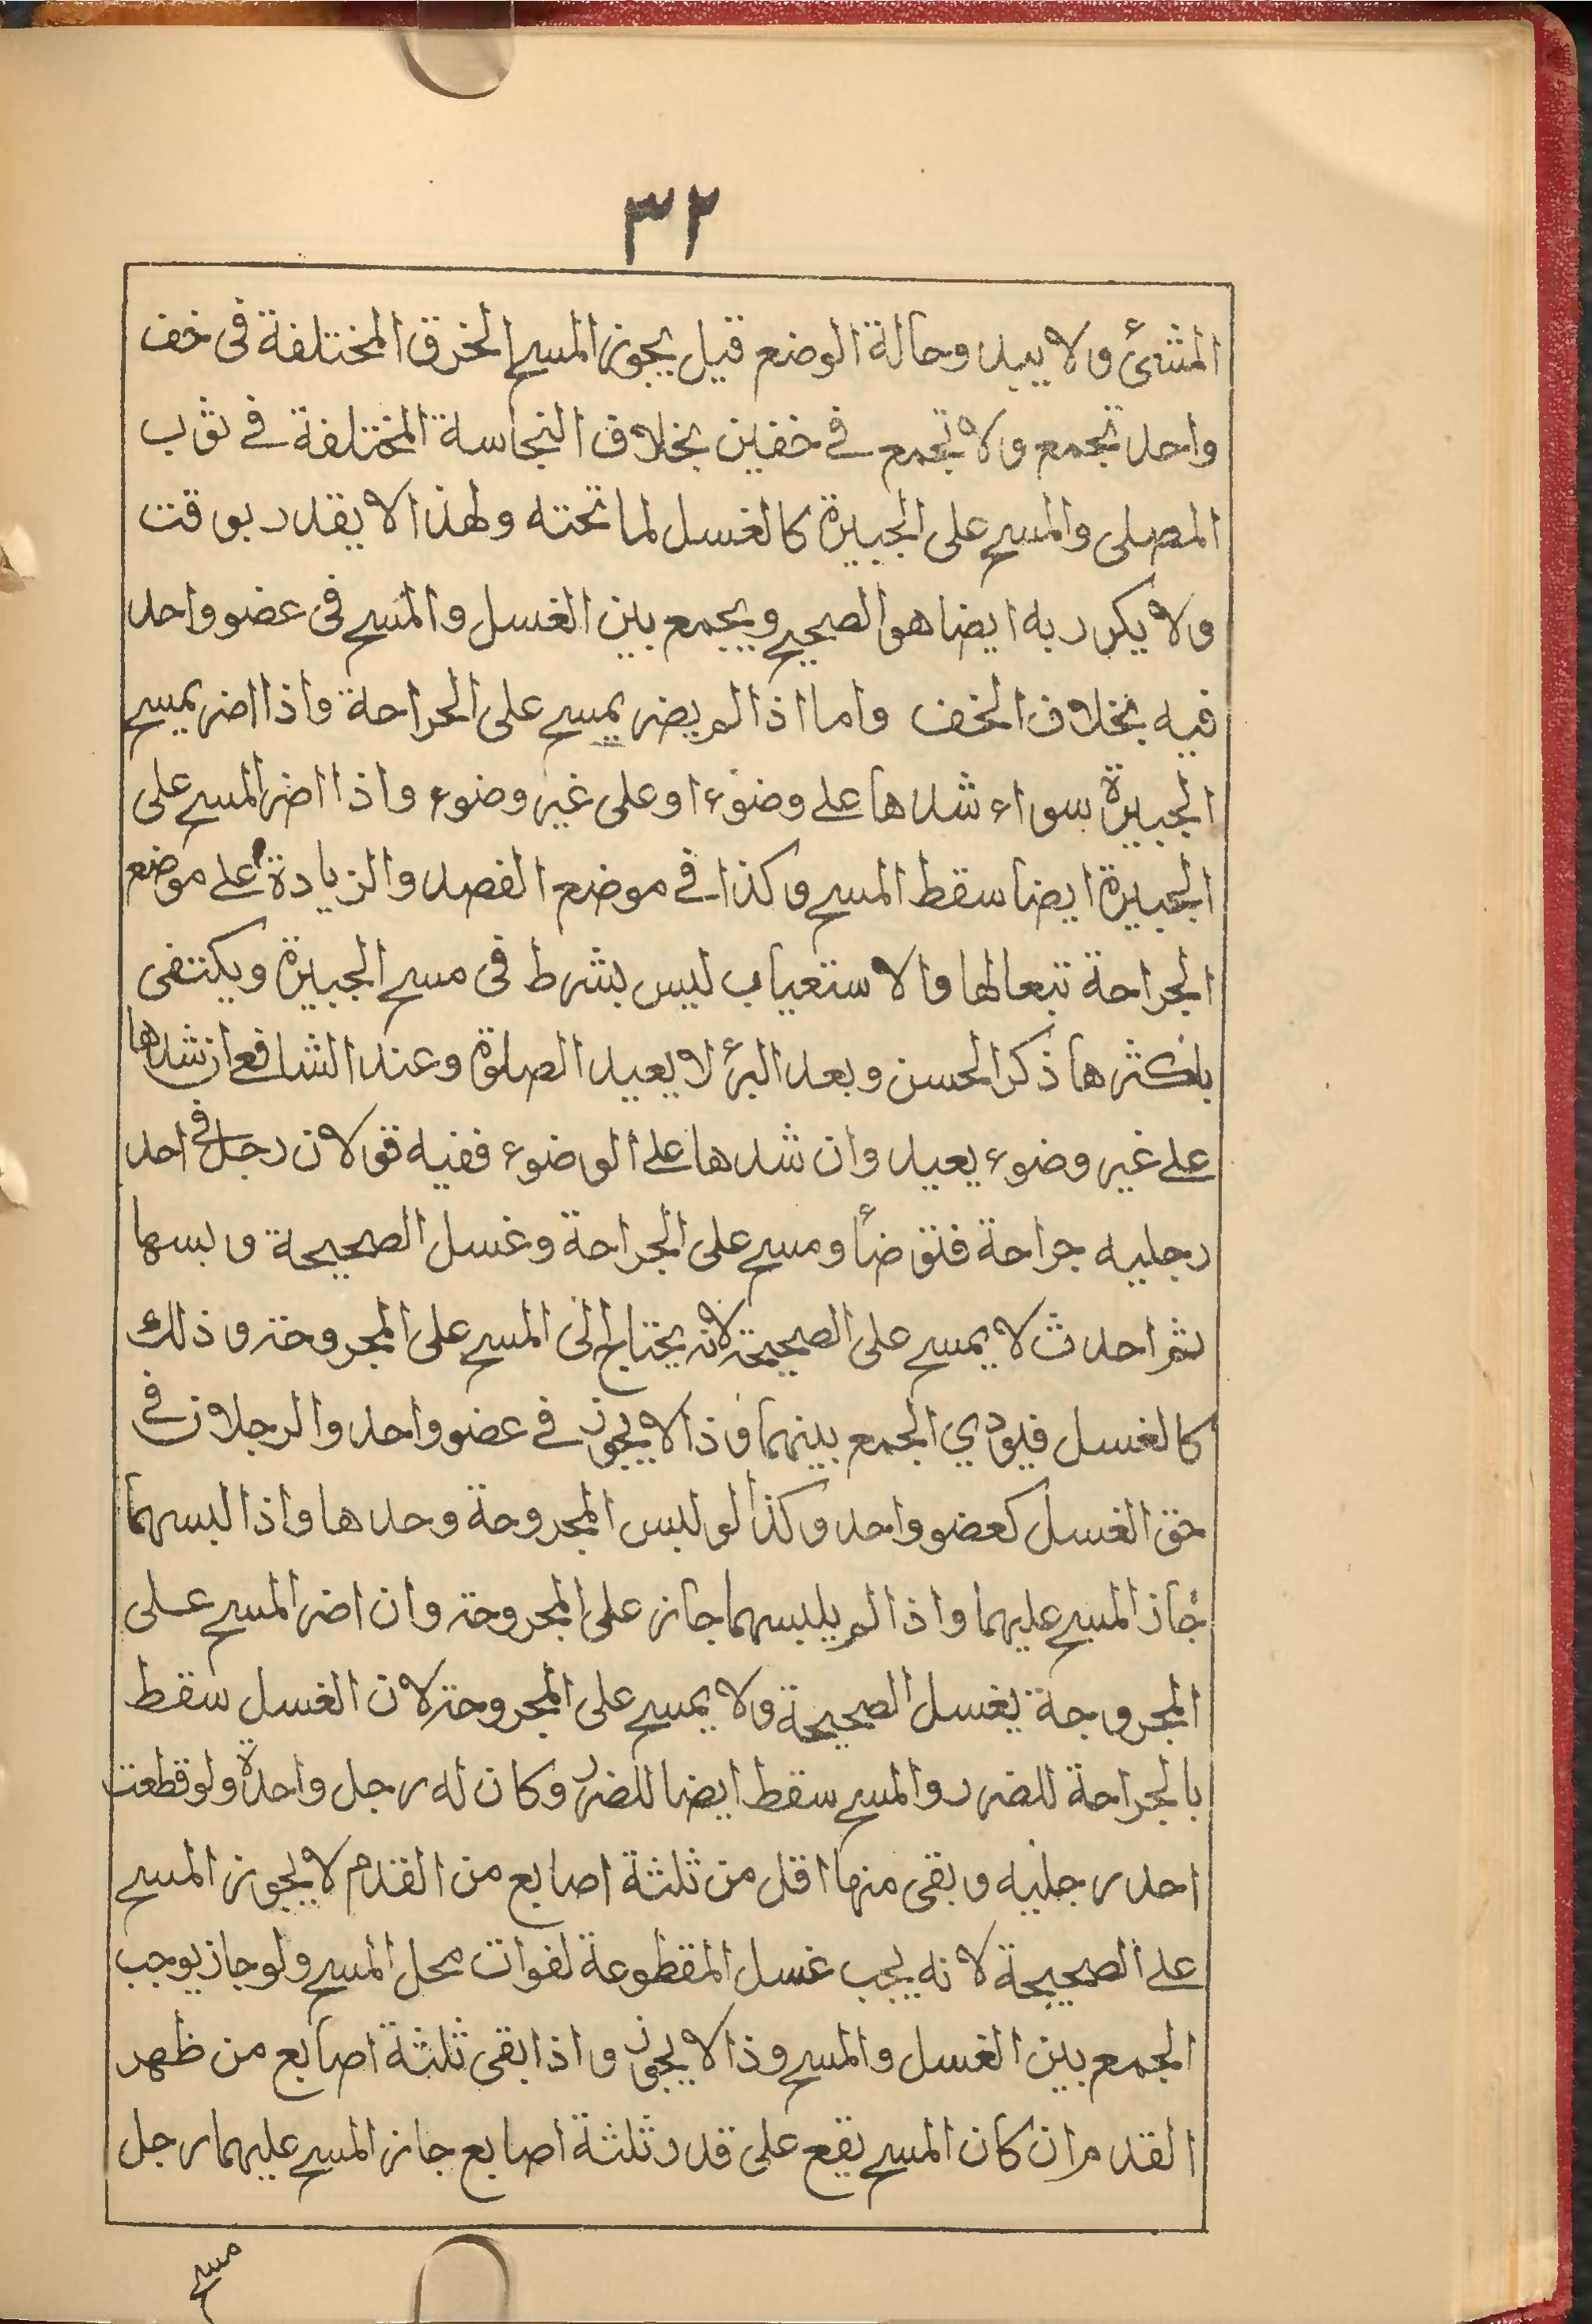 ٣٢
المشئ ولا يبدو حالة الوضع قيل يجوز المسح الخرق المختلفة فى خف
واحد تجمع ولا تجمع في خفين بخلاف النجاسة المختلفة في ثوب
المصلى والمسح على الجبيرة كالغسل لما تحته ولهذا لا يقدر بوقت
ولا يكرر به ايضا هو الصحيح ويجمع بين الغسل والمسح فى عضو واحد
فيه بخلاف الخف واما اذا لم يضر يمسح على الجراحة واذا اضر يمسح
الجبيرة سواء شدها على وضوء او على غير وضوء واذا اضر المسح على
الجبيرة ايضا سقط المسح وكذا في موضع الفصد والزيادة على موضع
الجراحة تبعا لها والاستعياب ليس بشرط فى مسح الجبيرة ويكتفى
باكثرها ذكر الحسن وبعد البرأ لا يعيد الصلوة وعند الشافع ان شدها
على غير وضوء يعيد وان شدها على الوضوء ففيه قولان رجل في احد
رجليه جراحة فتوضأ ومسح على الجراحة وغسل الصحيحة وبسها
ثم احدث لا يمسح على الصحيحة لانه يحتاج الى المسح على المجروحة وذلك
كالغسل فيودي الجمع بينهما وذا لا يجوز في عضو واحد والرجلان في
حق الغسل كعضو واحد وكذا لو لبس المجروحة وحدها واذا لبسهما
جاز المسح عليهما واذا لم يلبسهما جاز على المجروحة وان اضر المسح على
المجروحة يغسل الصحيحة ولا يمسح على المجروحة لان الغسل سقط
بالجراحة للضرر والمسح سقط ايضا للضرر وكان له رجل واحدة ولو قطعت
احد رجليه وبقى منها اقل من ثلثة اصابع من القدم لا يجوز المسح
على الصحيحة لانه يجب غسل المقطوعة لفوات محل المسح ولو جاز يوجب
الجمع بين الغسل والمسح وذا لا يجوز واذا بقى ثلثة اصابع من ظهر
القدم ان كان المسح يقع على قدر ثلثة اصابع جاز المسح عليهما رجل
مسح